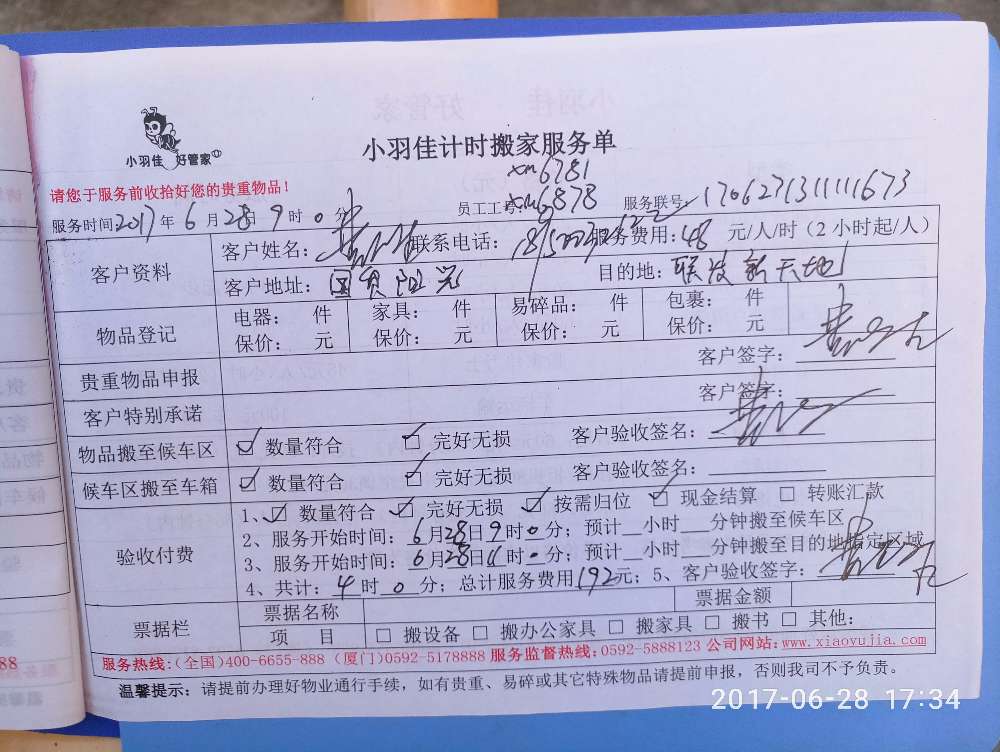 小羽佳 好管家
小羽佳计时搬家服务单
xm6781
请您于服务前收拾好您的贵重物品！
服务时间2017年6月28日9时0分 员工工号：xm6878 服务联号：
客户资料 客户姓名： 联系电话： 服务费用：48 元/人/时（2小时起/人）
客户地址：国贸阳光 目的地：联发新天地
物品登记 电器： 件 家具： 件 易碎品： 件 包裹： 件
保价： 元 保价： 元 保价： 元 保价： 元
贵重物品申报 客户签字：
客户特别承诺 客户签字：
物品搬至候车区 ☑ 数量符合 ☑ 完好无损 客户验收签名：
候车区搬至车箱 ☑ 数量符合 ☑ 完好无损 客户验收签名：
验收付费 1、☑ 数量符合 ☑ 完好无损 ☑ 按需归位 ☑ 现金结算 □ 转账汇款
2、服务开始时间：6月28日9时0分；预计__小时__分钟搬至候车区
3、服务开始时间：6月28日11时0分；预计__小时__分钟搬至目的地指定区域
4、共计：4时0分；总计服务费用192元；5、客户验收签字：
票据栏 票据名称 票据金额
项 目 □ 搬设备 □ 搬办公家具 □ 搬家具 □ 搬书 □ 其他：
服务热线：(全国)400-6655-888 (厦门)0592-5178888 服务监督热线：0592-5888123 公司网站：www.xiaoyujia.com
温馨提示：请提前办理好物业通行手续，如有贵重、易碎或其它特殊物品请提前申报，否则我司不予负责。
2017-06-28 17:34